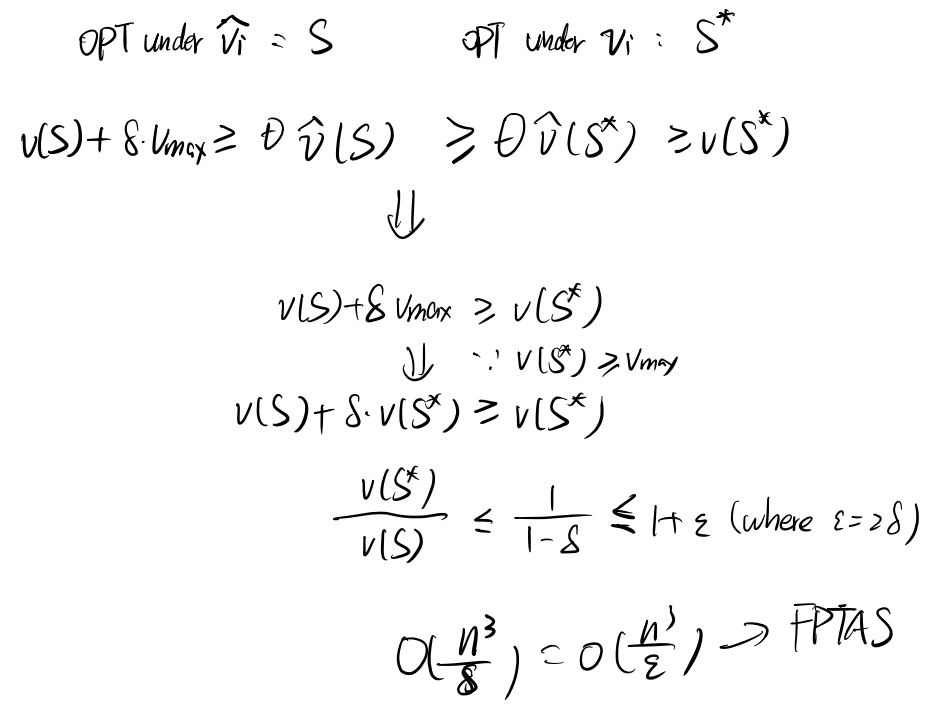 OPT under v̂i = S OPT under vi : S*
v(S) + δ·Vmax ≥ θ v̂(S) ≥ θ v̂(S*) ≥ v(S*)
⇓
v(S)+δ Vmax ≥ v(S*)
⇓ ∵ v(S*) ≥ Vmax
v(S)+ δ·v(S*) ≥ v(S*)
v(S*)/v(S) ≤ 1/(1-δ) ≤ 1+ε (where ε=2δ)
O(n³/δ) = O(n³/ε) → FPTAS